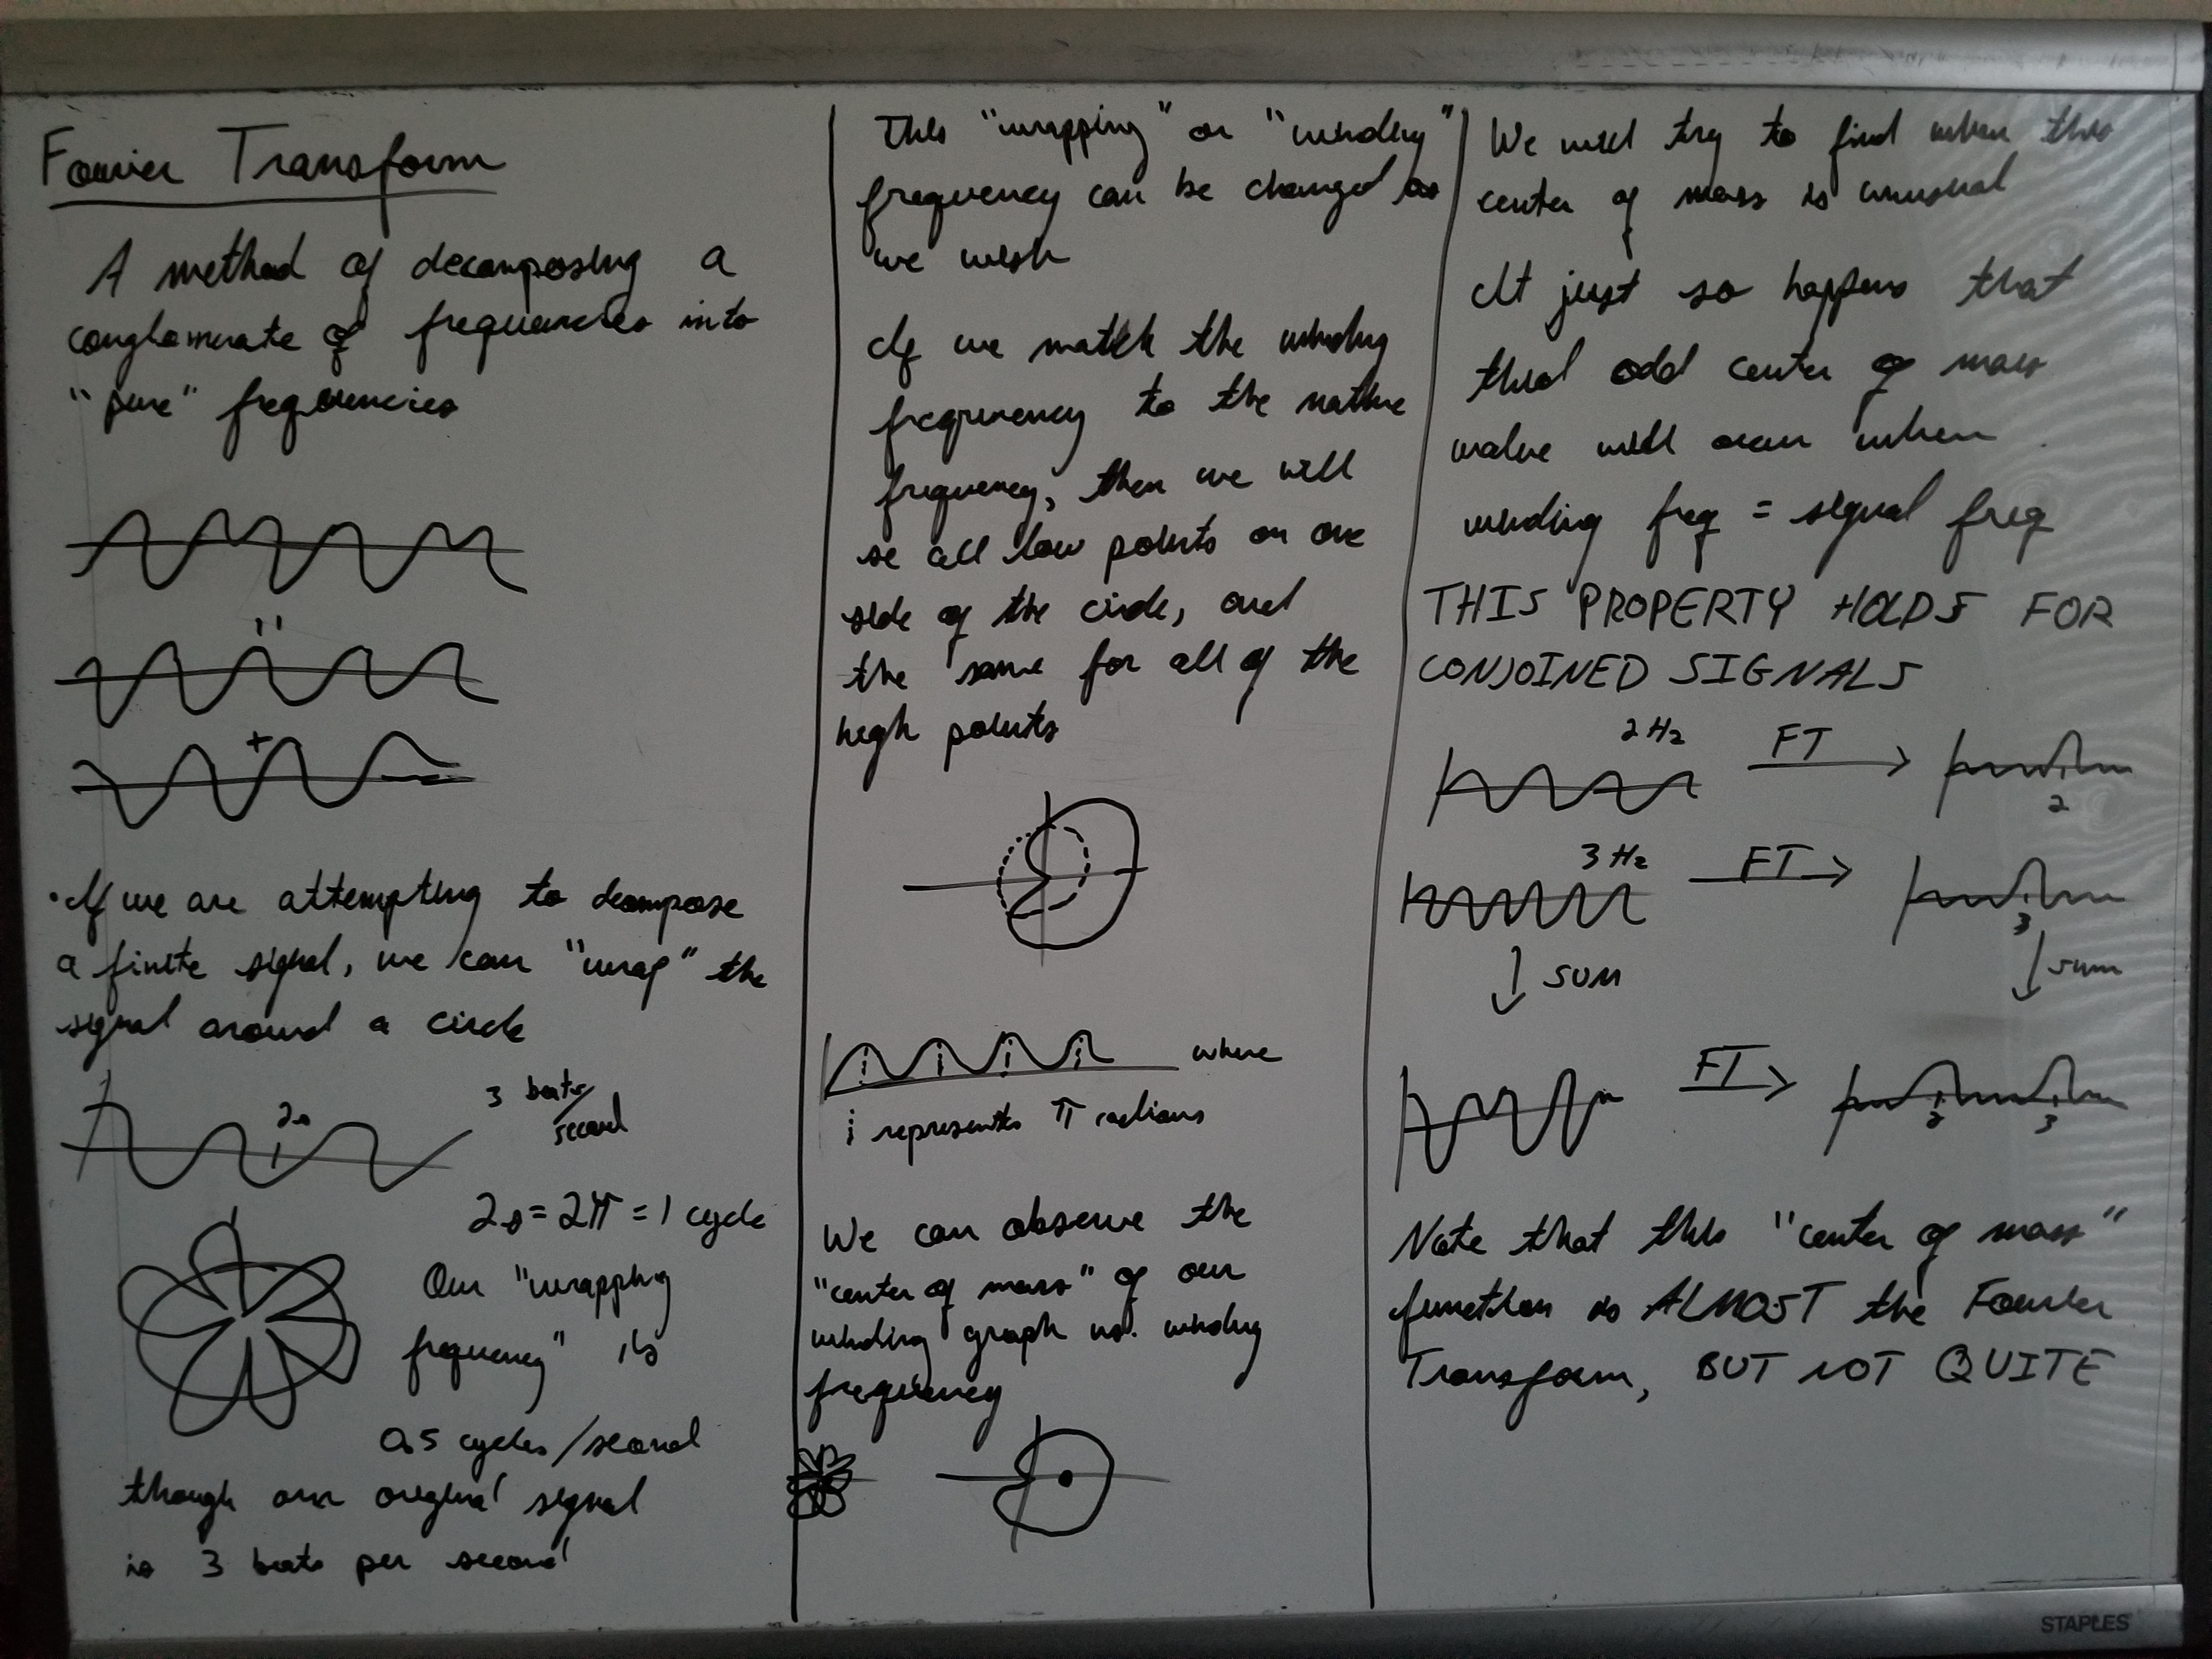 Fourier Transform
A method of decomposing a
conglomerate of frequencies into
"pure" frequencies
=
+
• If we are attempting to decompose
a finite signal, we can "wrap" the
signal around a circle
3 beats/
second
2s
2s = 2π = 1 cycle
Our "wrapping
frequency" is
0.5 cycles/second
though our original signal
is 3 beats per second
This "wrapping" or "winding"
frequency can be changed as
we wish
If we match the winding
frequency to the native
frequency, then we will
se all low points on one
side of the circle, and
the same for all of the
high points
where
¦ represents π radians
We can observe the
"center of mass" of our
winding graph vs. winding
frequency
We will try to find when this
center of mass is unusual
It just so happens that
this odd center of mass
value will occur when
winding freq = signal freq
THIS PROPERTY HOLDS FOR
CONJOINED SIGNALS
2 Hz FT
2
3 Hz FT
3
↓ SUM ↓ sum
FT
2 3
Note that this "center of mass"
function is ALMOST the Fourier
Transform, BUT NOT QUITE
STAPLES